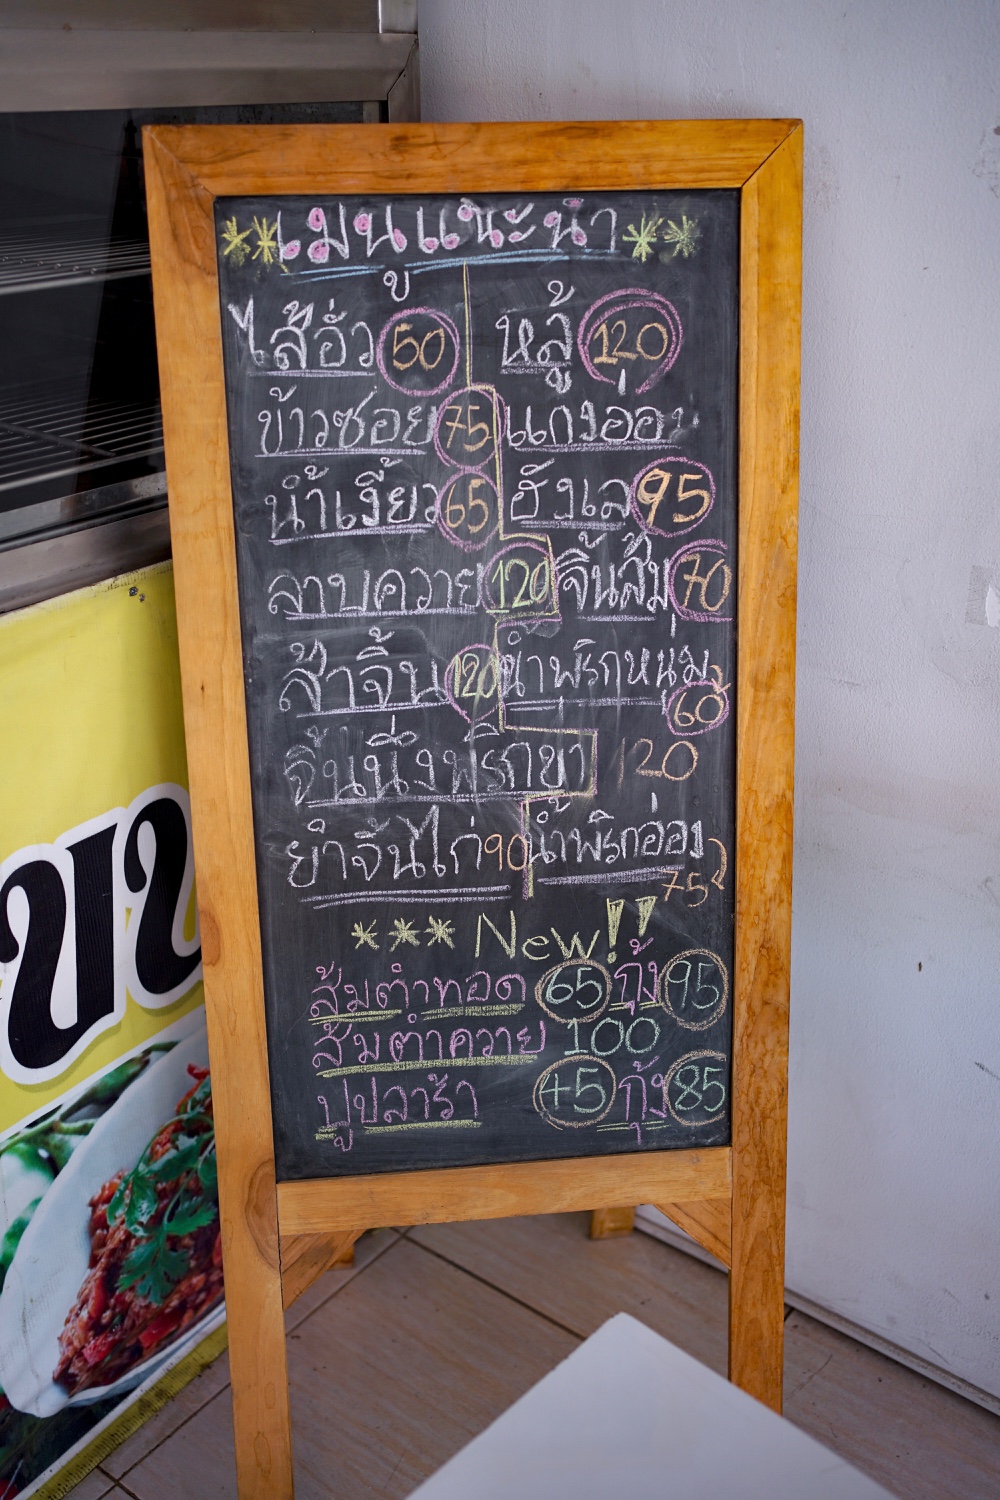 **เมนูแนะนำ**
ไส้อั่ว 50 หลู้ 120
ข้าวซอย 75 แกงอ่อม
น้ำเงี้ยว 65 ฮังเล 95
ลาบควาย 120 จิ้นส้ม 70
ส้าจิ้น 120 น้ำพริกหนุ่ม 60
จิ้นนึ่งพริกขา 120
ยำจิ้นไก่ 90 น้ำพริกอ่อง 75
*** New!!
ส้มตำทอด 65 กุ้ง 95
ส้มตำควาย 100
ปูปลาร้า 45 กุ้ง 85